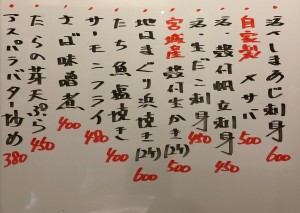 活〆しまあじ刺身 600
自家製〆サバ 500
活・殻付帆立刺身 450
活・生だこ刺身 450
宮城産 殻付生かき(2ヶ) 500
地はまぐり浜焼き(2ヶ) 600
たち魚塩焼き 400
サーモンフライ 480
さば味噌煮 400
たらの芽天ぷら 450
アスパラバター炒め 380